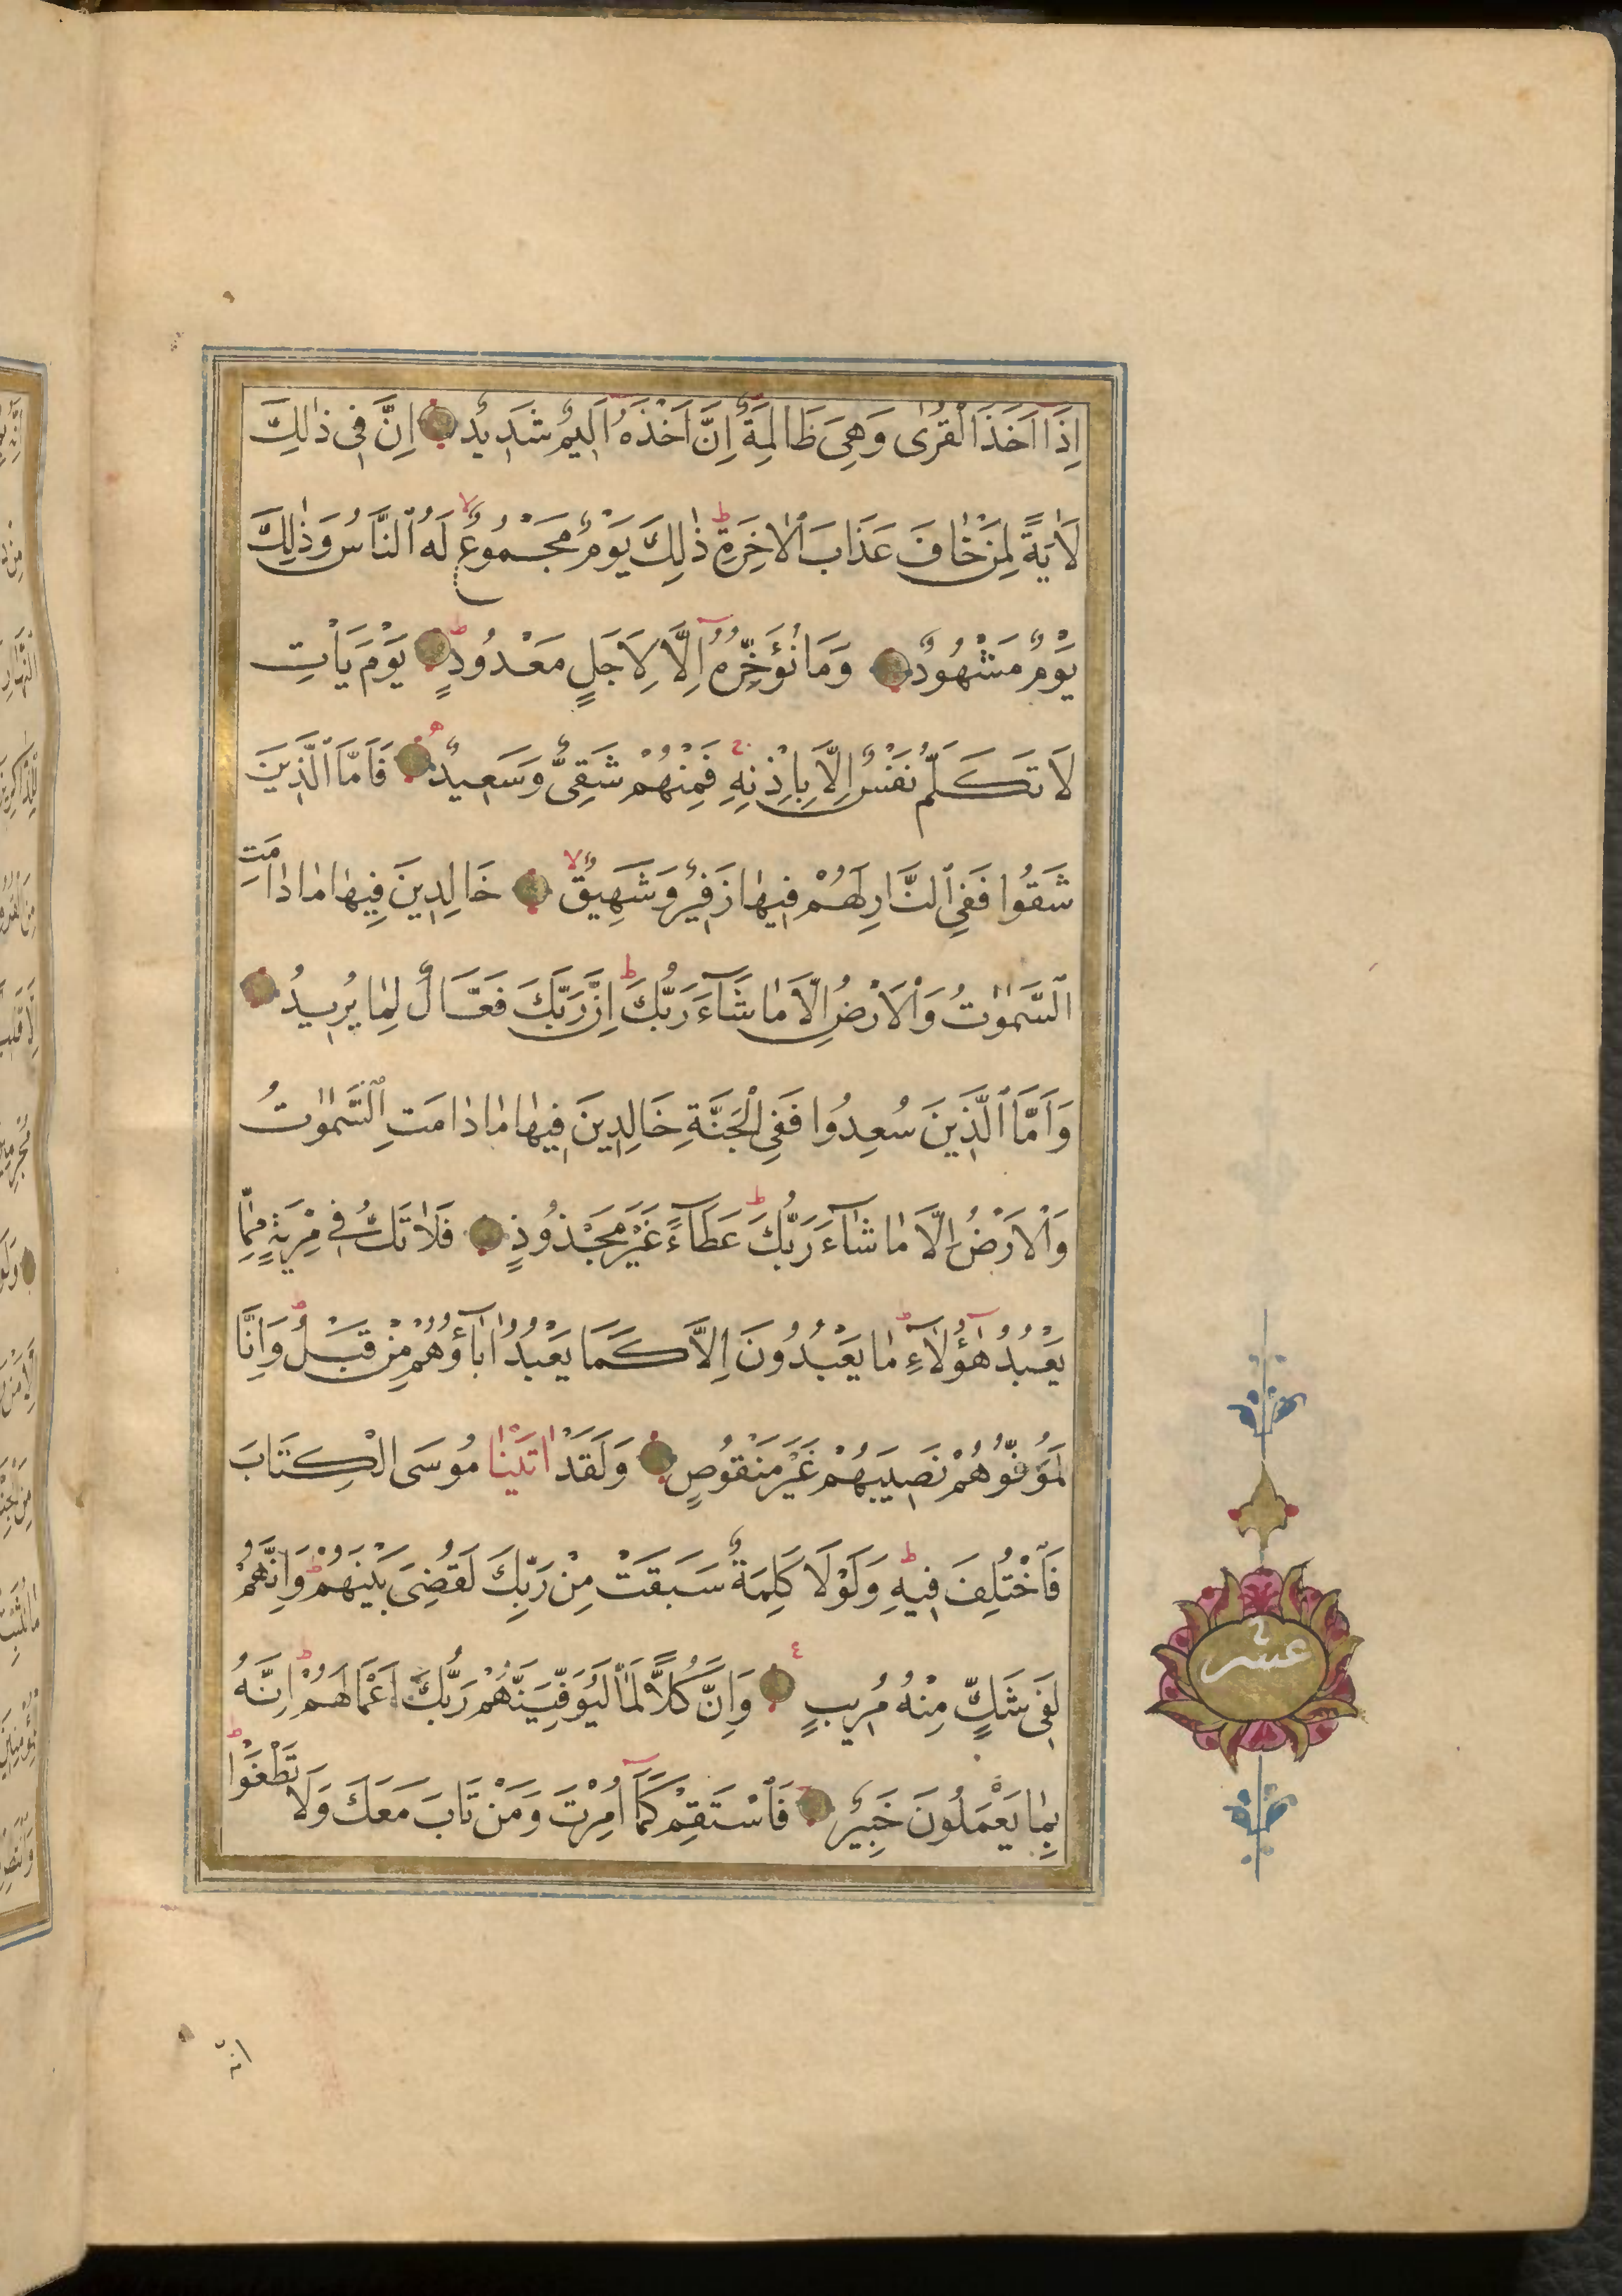 اِذَٓا اَخَذَ الْقُرٰى وَهِىَ ظَالِمَةٌ اِنَّ اَخْذَهُٓ اَلِيمٌ شَدِيدٌ اِنَّ فِى ذٰلِكَ
لَاٰيَةً لِمَنْ خَافَ عَذَابَ الْاٰخِرَةِ ذٰلِكَ يَوْمٌ مَجْمُوعٌ لَهُ النَّاسُ وَذٰلِكَ
يَوْمٌ مَشْهُودٌ وَمَا نُؤَخِّرُهُٓ اِلَّا لِاَجَلٍ مَعْدُودٍ يَوْمَ يَأْتِ
لَا تَكَلَّمُ نَفْسٌ اِلَّا بِاِذْنِهِ فَمِنْهُمْ شَقِىٌّ وَسَعِيدٌ فَاَمَّا الَّذِينَ
شَقُوا فَفِى النَّارِ لَهُمْ فِيهَا زَفِيرٌ وَشَهِيقٌ خَالِدِينَ فِيهَا مَا دَامَتِ
السَّمٰوٰتُ وَالْاَرْضُ اِلَّا مَا شَآءَ رَبُّكَ اِنَّ رَبَّكَ فَعَّالٌ لِمَا يُرِيدُ
وَاَمَّا الَّذِينَ سُعِدُوا فَفِى الْجَنَّةِ خَالِدِينَ فِيهَا مَا دَامَتِ السَّمٰوٰتُ
وَالْاَرْضُ اِلَّا مَا شَآءَ رَبُّكَ عَطَآءً غَيْرَ مَجْذُوذٍ فَلَا تَكُ فِى مِرْيَةٍ مِمَّا
يَعْبُدُ هٰٓؤُلَآءِ مَا يَعْبُدُونَ اِلَّا كَمَا يَعْبُدُ اٰبَآؤُهُمْ مِنْ قَبْلُ وَاِنَّا
لَمُوَفُّوهُمْ نَصِيبَهُمْ غَيْرَ مَنْقُوصٍ وَلَقَدْ اٰتَيْنَا مُوسَى الْكِتَابَ
فَاخْتُلِفَ فِيهِ وَلَوْلَا كَلِمَةٌ سَبَقَتْ مِنْ رَبِّكَ لَقُضِىَ بَيْنَهُمْ وَاِنَّهُمْ
لَفِى شَكٍّ مِنْهُ مُرِيبٍ وَاِنَّ كُلًّا لَمَّا لَيُوَفِّيَنَّهُمْ رَبُّكَ اَعْمَالَهُمْ اِنَّهُ
بِمَا يَعْمَلُونَ خَبِيرٌ فَاسْتَقِمْ كَمَٓا اُمِرْتَ وَمَنْ تَابَ مَعَكَ وَلَا تَطْغَوْا
عشر
انه